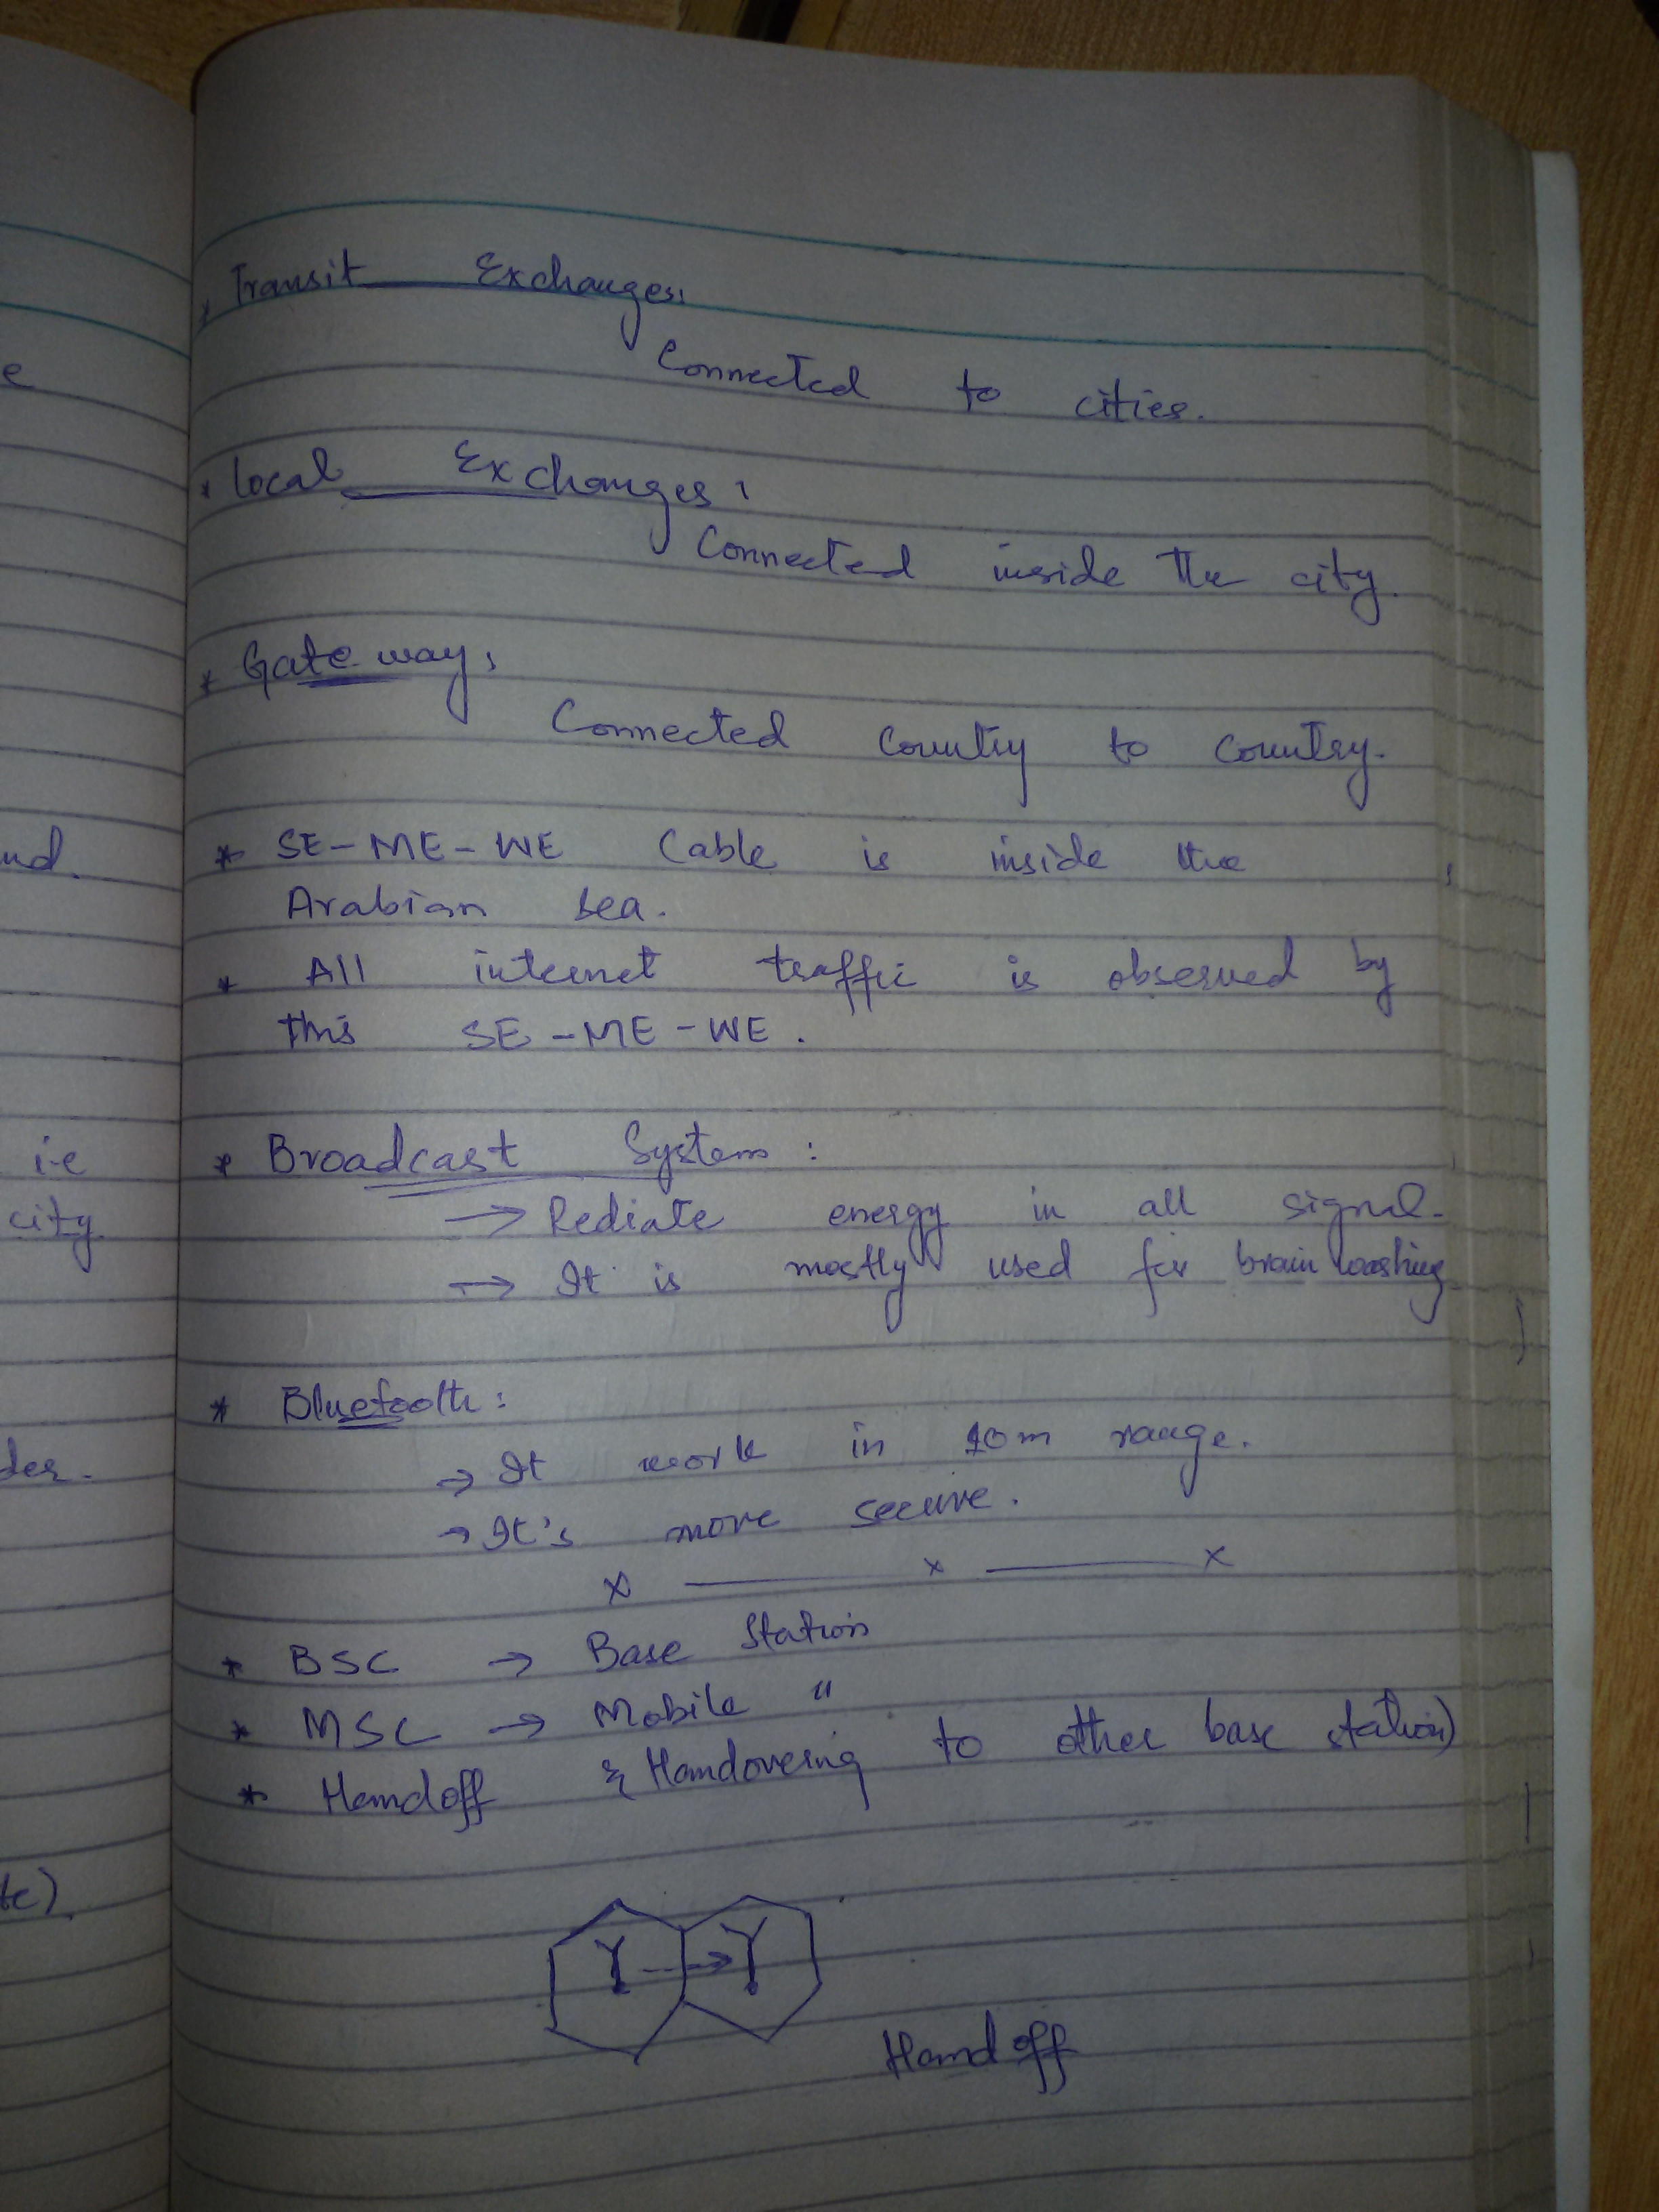 e
nd.
i.e
city
der.
te)
* Transit Exchanges:
Connected to cities.
* Local Exchanges:
Connected inside the city.
* Gate way:
Connected country to country.
* SE-ME-WE Cable is inside the
Arabian Sea.
* All internet traffic is observed by
this SE-ME-WE.
* Broadcast System:
→ Rediate energy in all signal.
→ It is mostly used for brain washing
* Bluetooth:
→ It work in 10m range.
→ It's more secure.
x ——— x ——— x
* BSC → Base Station
* MSC → Mobile "
* Handoff & Handovering to other base station)
Hand off